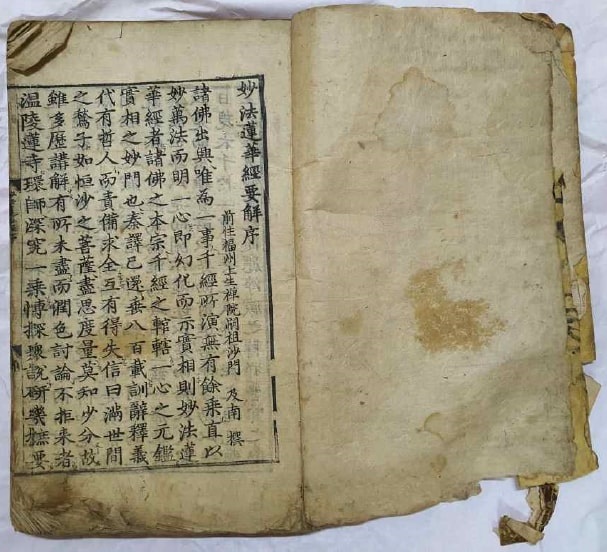 妙法蓮華經要解序
前住福州上生禪院嗣祖沙門 及南 撰
諸佛出興唯為一事千經所演無有餘乗直以
妙萬法而明一心即幻化而示實相則妙法蓮
華經者諸佛之本宗千經之輨轄一心之元鑑
實相之妙門也秦譯已還垂八百載訓辭釋義
代有哲人而責備求全互有得失信曰滿世間
之鶖子如恒沙之菩薩盡思度量莫知少分故
雖多歷講解有所未盡而潤色討論不拒来者
温陵蓮寺環師深究一乗愽探衆說研幾摭要